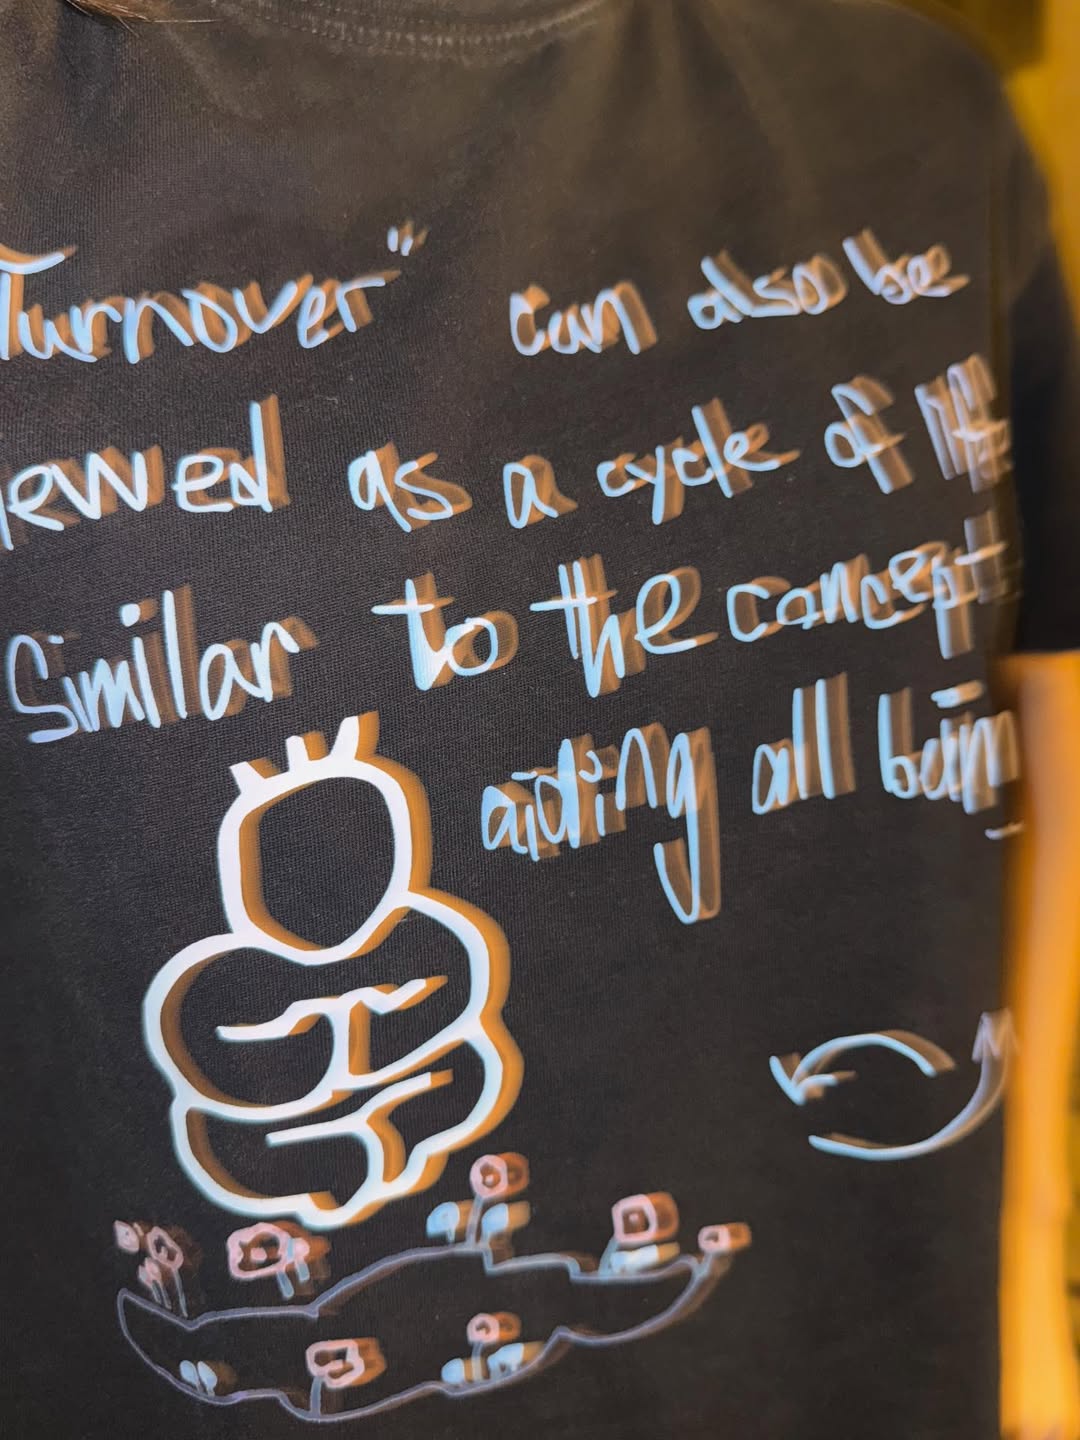 Turnover" can also be
ewed as a cycle of life
Similar to the concept
aiding all bein